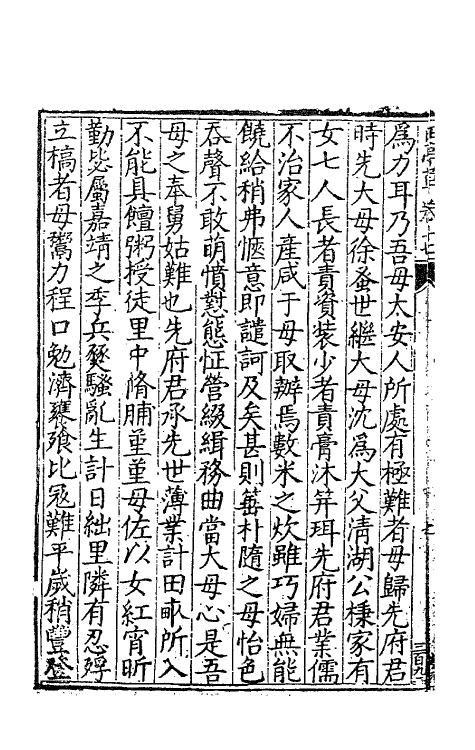 爲力耳乃吾母太安人所處有極難者母歸先府君
時先大母徐蚤世繼大母沈爲大父清湖公棟家有
女七人長者責資裝少者責膏沐笄珥先府君業儒
不治家人產咸于母取辦焉數米之炊雖巧婦無能
饒給稍弗愜意即譴訶及矣甚則箠朴隨之母怡色
吞聲不敢萌憤懟態怔營綴緝務曲當大母心是吾
母之奉舅姑難也先府君承先世薄業計田畝所入
不能具饘粥授徒里中脩脯菫菫母佐以女紅宵昕
勤毖屬嘉靖之季兵燹騷亂生計日絀里隣有忍殍
立槁者母鶩力程口勉濟饔飱比寇難平歲稍豐登